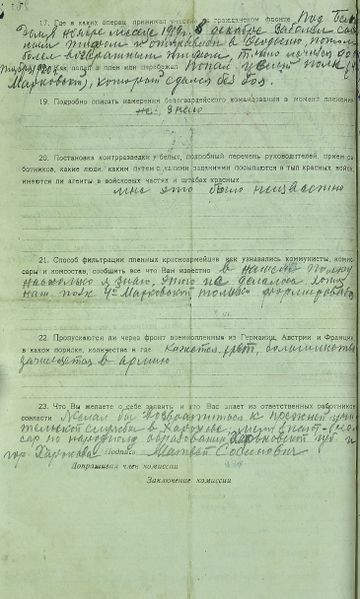 17. Где и каких операц. принимал участие на гражданском фронте Под Бел-
в ноябре месяце 1919г. В декабре заболел сып-
ным тифом и отправлен в Феодосию, потом
болел возвратным тифом,
18. Как попал в плен или перебежал Попал полк
Марковск), который сдался без боя.
19. Подробно описать намерения белогвардейского командования в момент пленения
не знаю
20. Постановка контрразведки у белых, подробный перечень руководителей, прием ра-
ботников, какие люди, каким путем с какими заданиями посылаются в тыл красных войск,
имеются ли агенты в войсковых частях и штабах красных
мне это было неизвестно
21. Способ фильтрации пленных красноармейцев как узнавались коммунисты, комис-
сары и комсостав, сообщить все что Вам известно в нашем полку
насколько я знаю, этого не делалось,
наш полк Марковский только формировался
22. Пропускаются ли через фронт военнопленные из Германии, Австрии и Франции
в каком порядке, количестве и где Кажется, нет, большинство
зачисляется в армию
23. Что Вы желаете о себе заявить и кто Вас знает из ответственных работников
совласти Желал бы возвратиться к прежней учи-
тельской службе в Харькове, меня знает комис-
сар по народному образованию Харьковской губ. и
гор. Харькова Подпись Матвей
Допрашивал член комиссии
Заключение комиссии